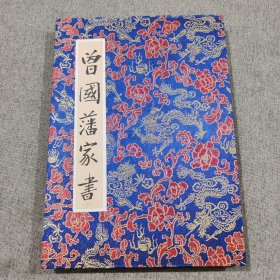 曾國藩家書